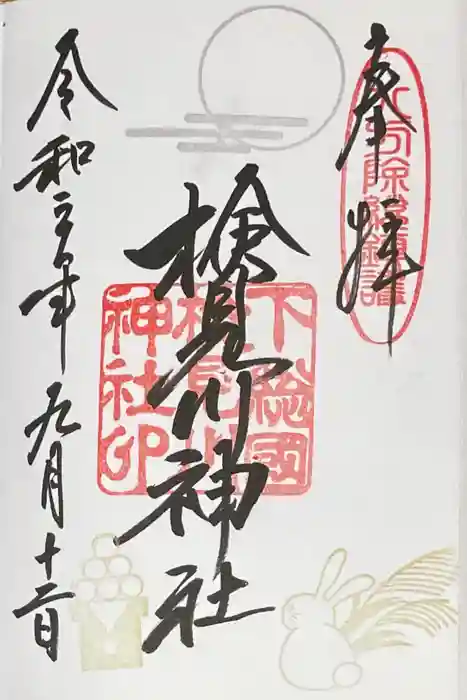 奉拝
八方除総鎮護
検見川神社
下総國
検見川
神社印
令和三年九月十二日